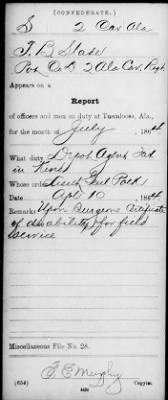 (CONFEDERATE.)
S 2 Cav Ala
T. B. Slade
Co. D 2 Ala Cav. Regt.
Appears on a
Report
of officers and men on duty at Tuscaloosa, Ala.,
for the month of July, 1864
What duty Depot Agent Tax
in Kind
Whose order Lieut Genl Polk
Date Apl 10, 1864
Remarks: Upon Surgeons Certificate
of disability for field
service
Miscellaneous File No. 28.
F. E. Murphy
(654) Copyist.